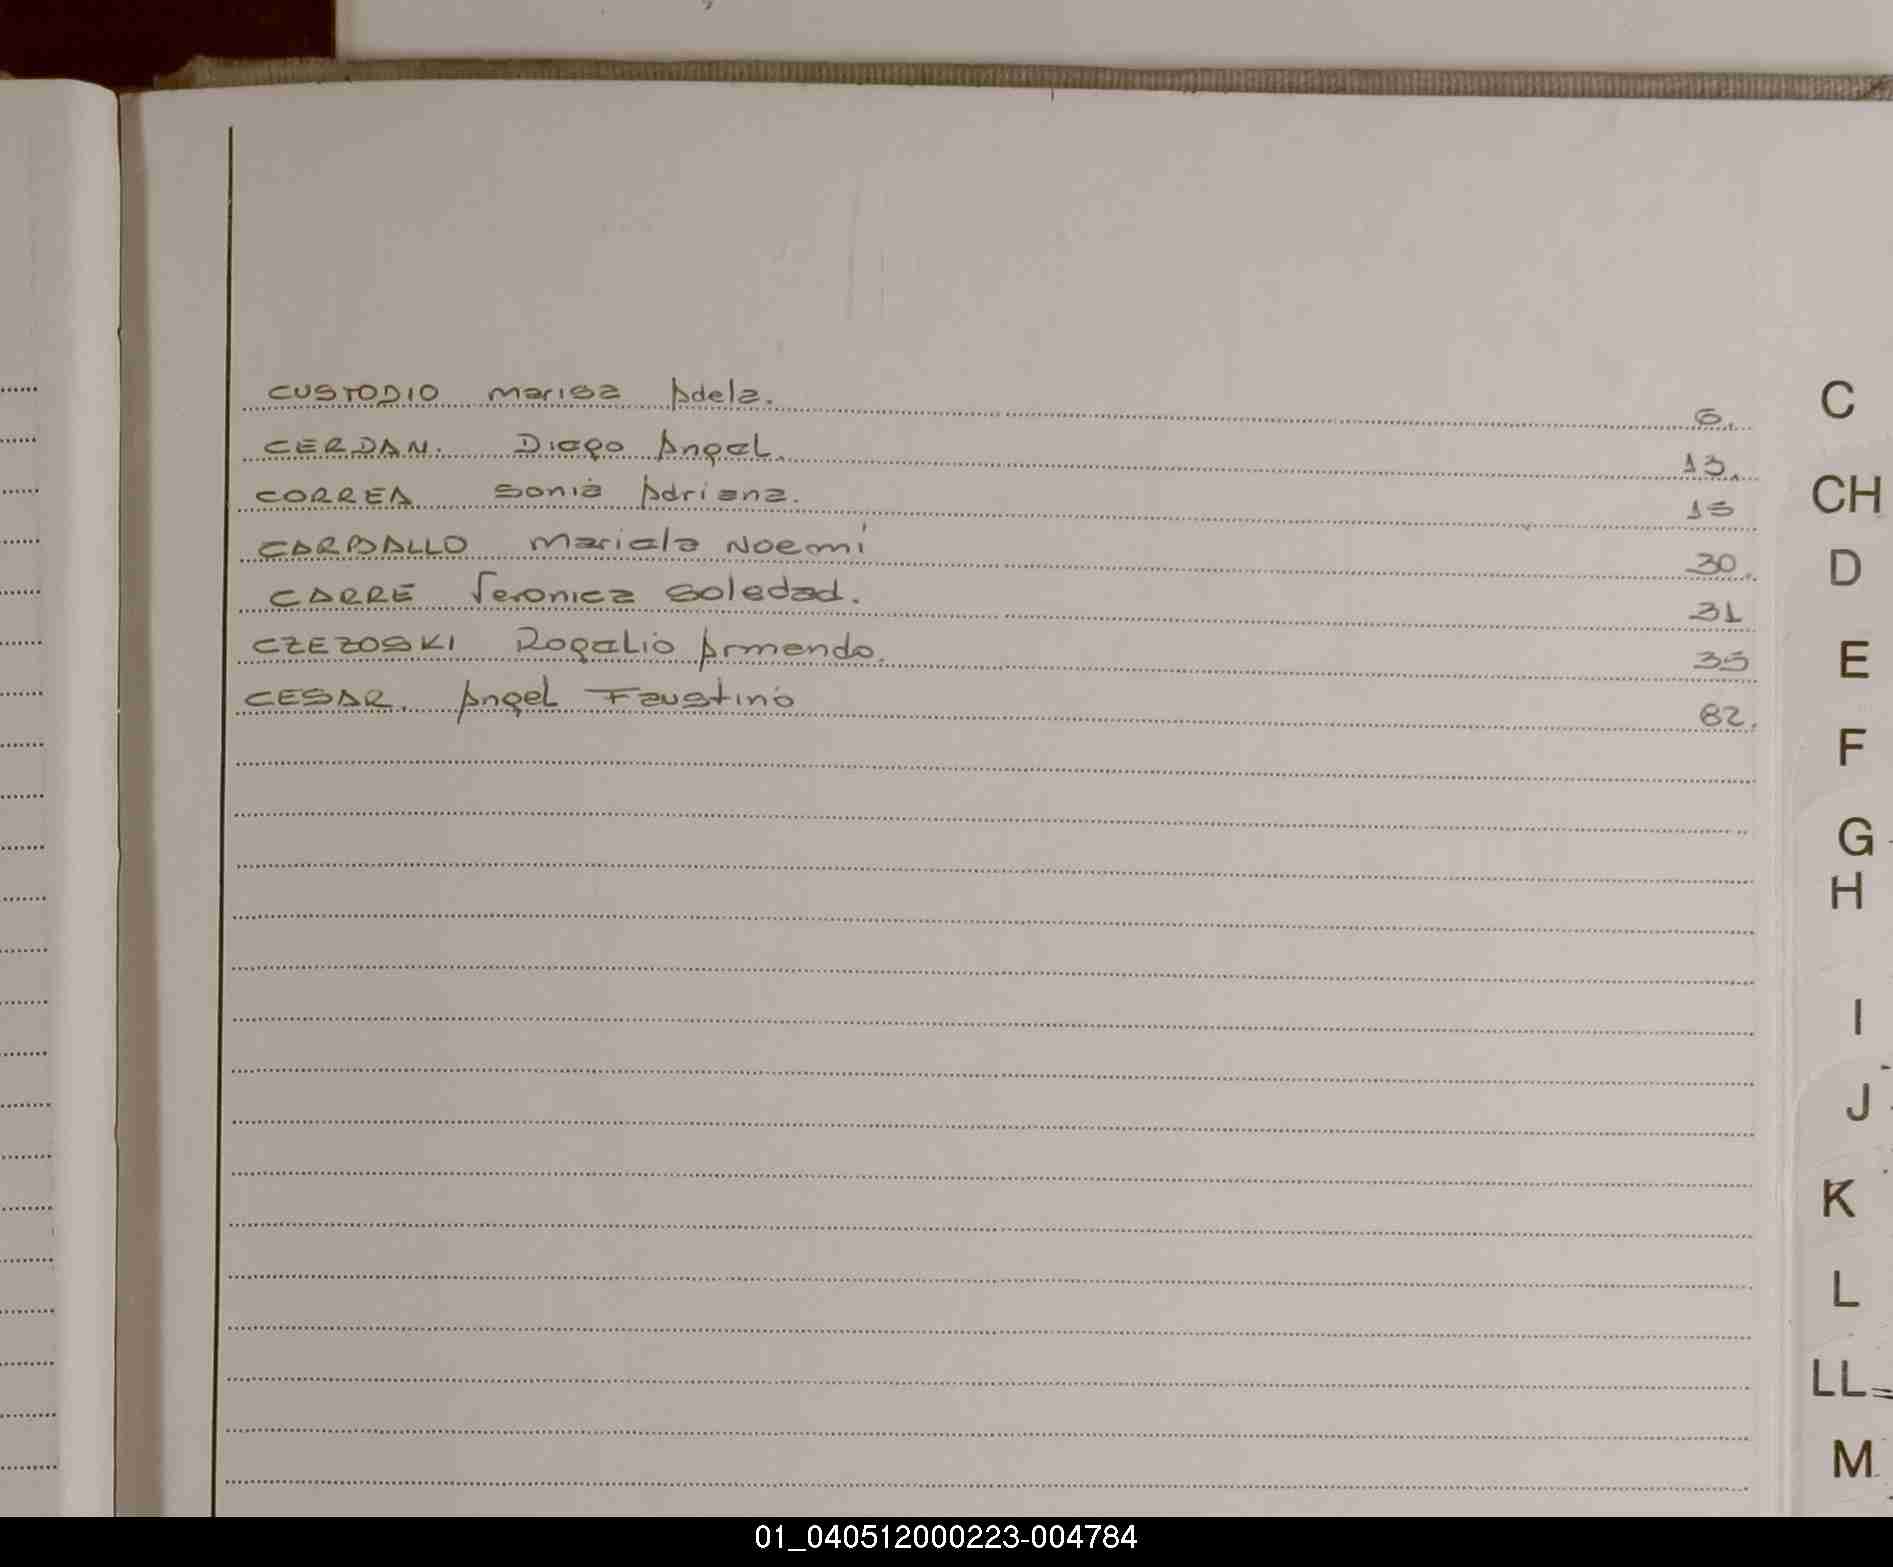 CUSTODIO Marisa Adela. 6.
CERDAN. Diego Angel. 13.
CORREA Sonia Adriana. 15
CARBALLO Mariela Noemí 30.
CARRÉ Veronica Soledad. 31
CZEZOSKI Rogelio Armando. 35
CESAR. Angel Faustino 82.
C
CH
D
E
F
G
H
I
J
K
L
LL
M
01_040512000223-004784